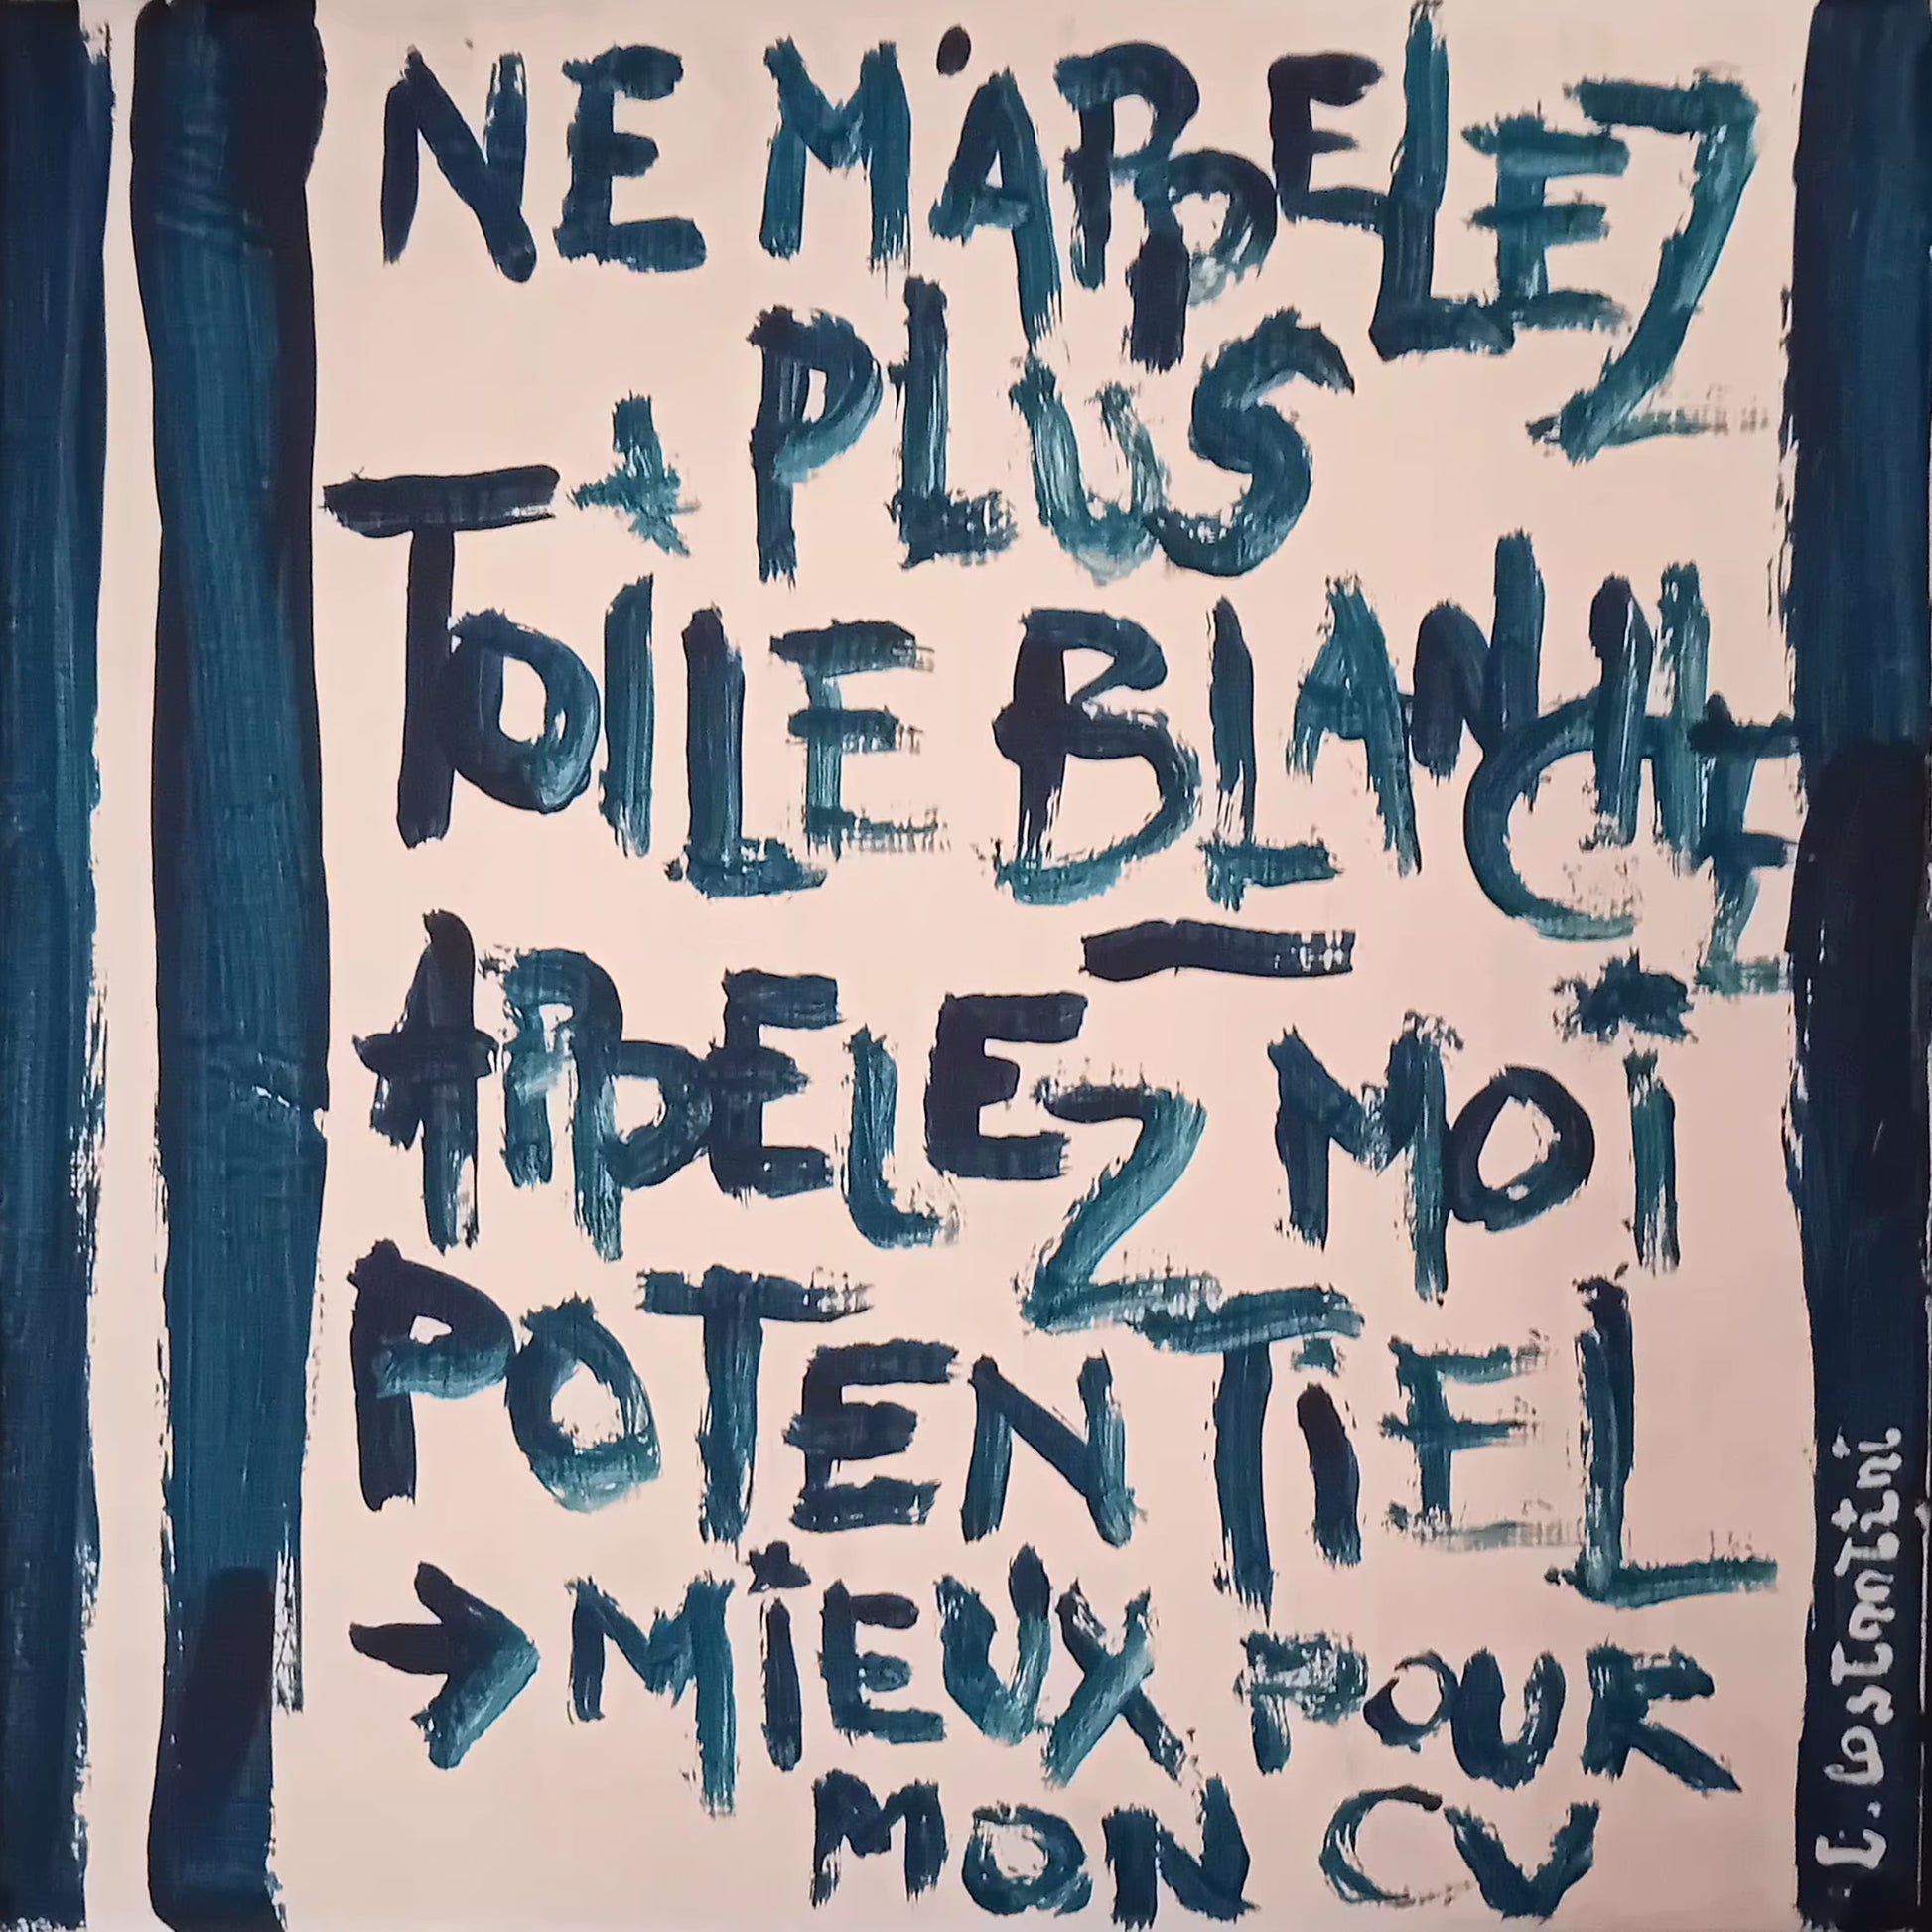 NE M'APPELEZ
+ PLUS
TOILE BLANCHE
_
APPELEZ MOI
POTENTIEL
→ MIEUX POUR
MON CV
L. Costantini